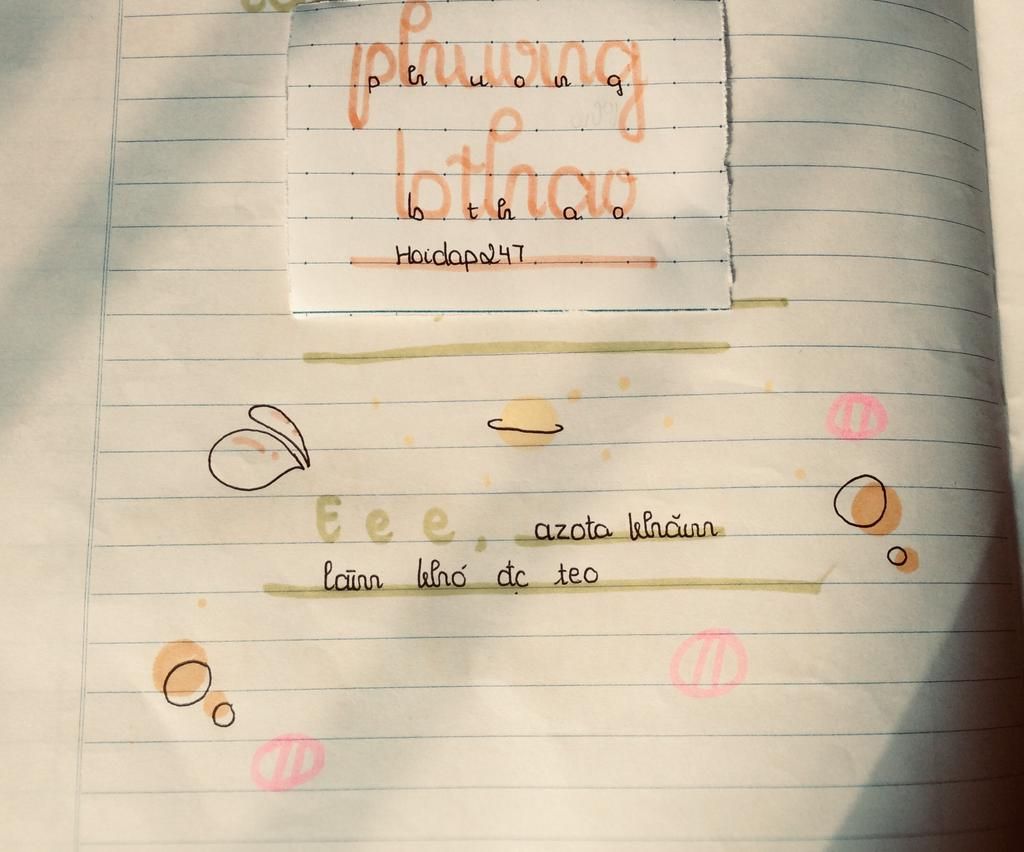 phuong
p h u o n g
bthao
b t h a o
Hoidap247
E e e , azota
khó đc teo